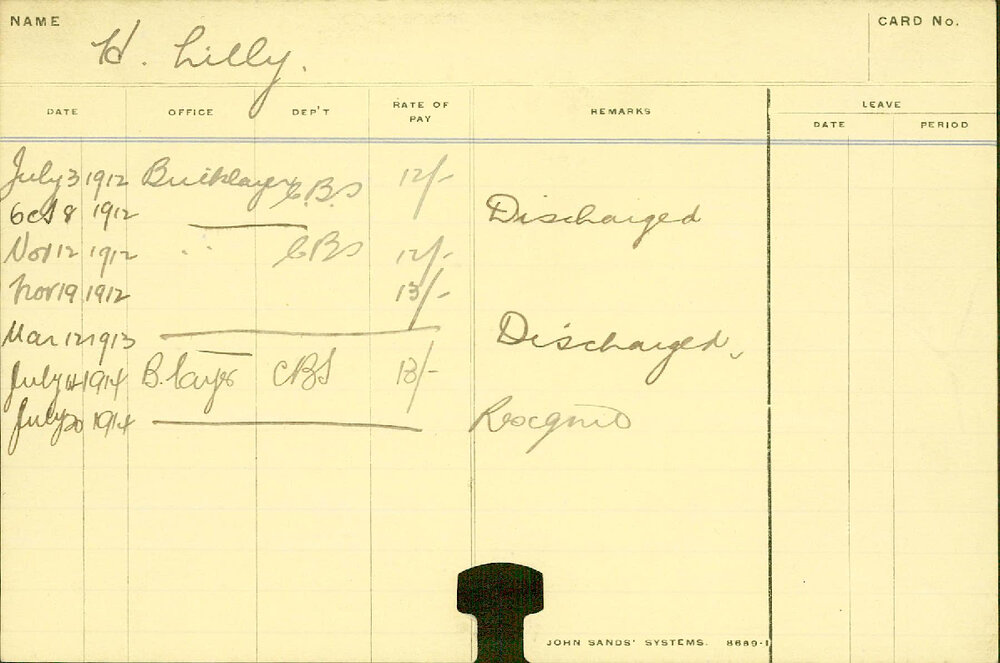 NAME
H. Lilly.
CARD No.
DATE OFFICE DEP'T RATE OF PAY REMARKS LEAVE
DATE PERIOD
July 3 1912 Bricklayer C.B.S 12/-
Oct 8 1912 Discharged
Nov 12 1912 " CBS 12/-
Nov 19 1912 13/-
Mar 12 1913 Discharged,
July 14 1914 B. layer CBS 13/-
July 20 1914
JOHN SANDS' SYSTEMS. 8689-1